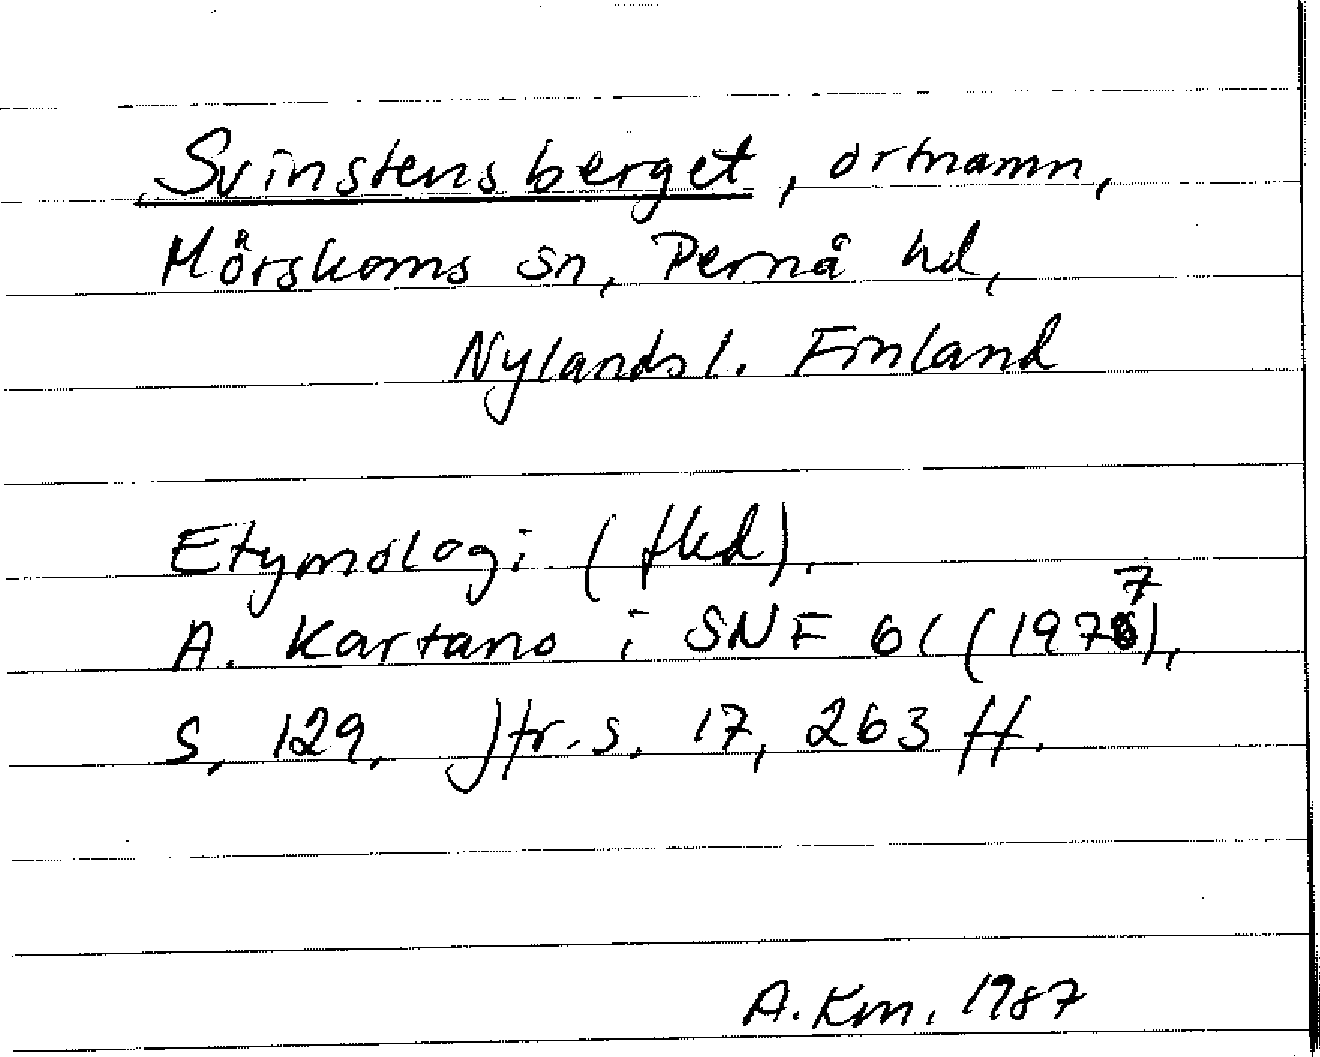 Svinstensberget, ortnamn,
Mörskoms sn, Pernå hd,
Nylands l. Finland
Etymologi (fled).
A. Kartano i SNF 61 (1977),
s. 129. Jfr. s. 17, 263 ff.
A. Km. 1987